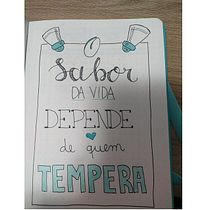 O
Sabor
DA VIDA
DEPENDE
de quem
TEMPERA